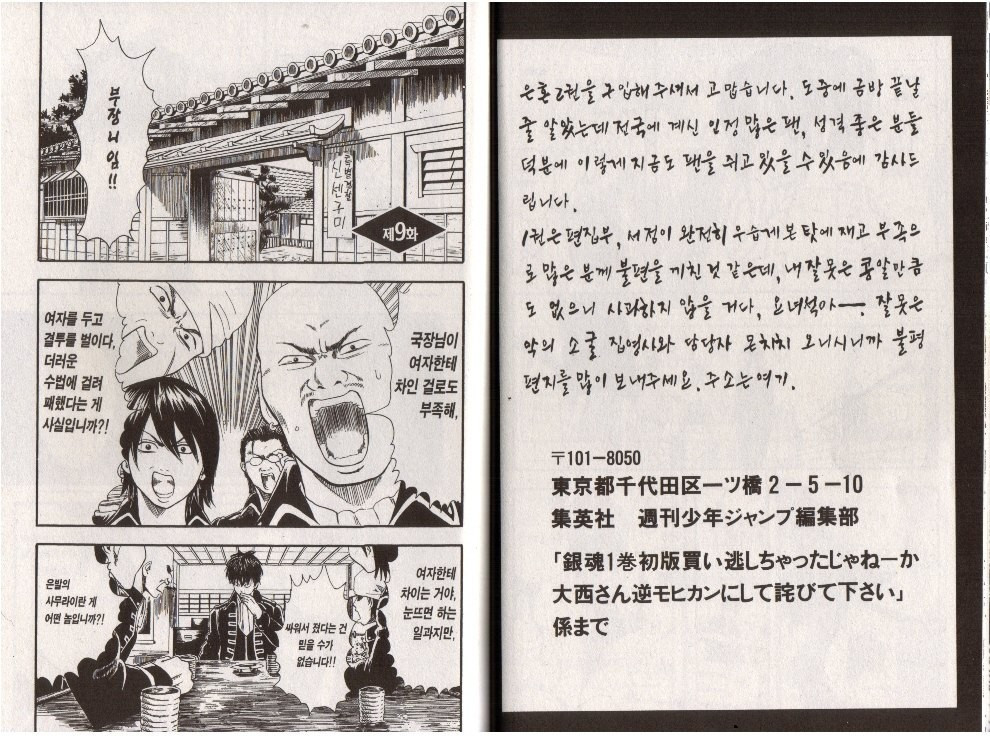 은혼 2권을 구입해 주셔서 고맙습니다. 도중에 금방 끝날
줄 알았는데 전국에 계신 인정 많은 팬, 성격 좋은 분들
덕분에 이렇게 지금도 펜을 쥐고 있을 수 있음에 감사드
립니다.
1권은 편집부, 서점이 완전히 우습게 본 탓에 재고 부족으
로 많은 분께 불편을 끼친 것 같은데, 내 잘못은 콩알만큼
도 없으니 사과하지 않을 거다, 요녀석아―. 잘못은
악의 소굴 집영사와 담당자 몬치치 오니시니까 불평
편지를 많이 보내주세요. 주소는 여기.
〒101-8050
東京都千代田区一ツ橋2-5-10
集英社 週刊少年ジャンプ編集部
「銀魂1巻初版買い逃しちゃったじゃねーか
大西さん逆モヒカンにして詫びて下さい」
係まで
부장니임!!
특별경찰
신센구미
제9화
국장님이
여자한테
차인 걸로도
부족해,
여자를 두고
결투를 벌이다,
더러운
수법에 걸려
패했다는 게
사실입니까?!
여자한테
차이는 거야,
눈뜨면 하는
일과지만,
싸워서 졌다는 건
믿을 수가
없습니다!!
은발의
사무라이란 게
어떤 놈입니까?!